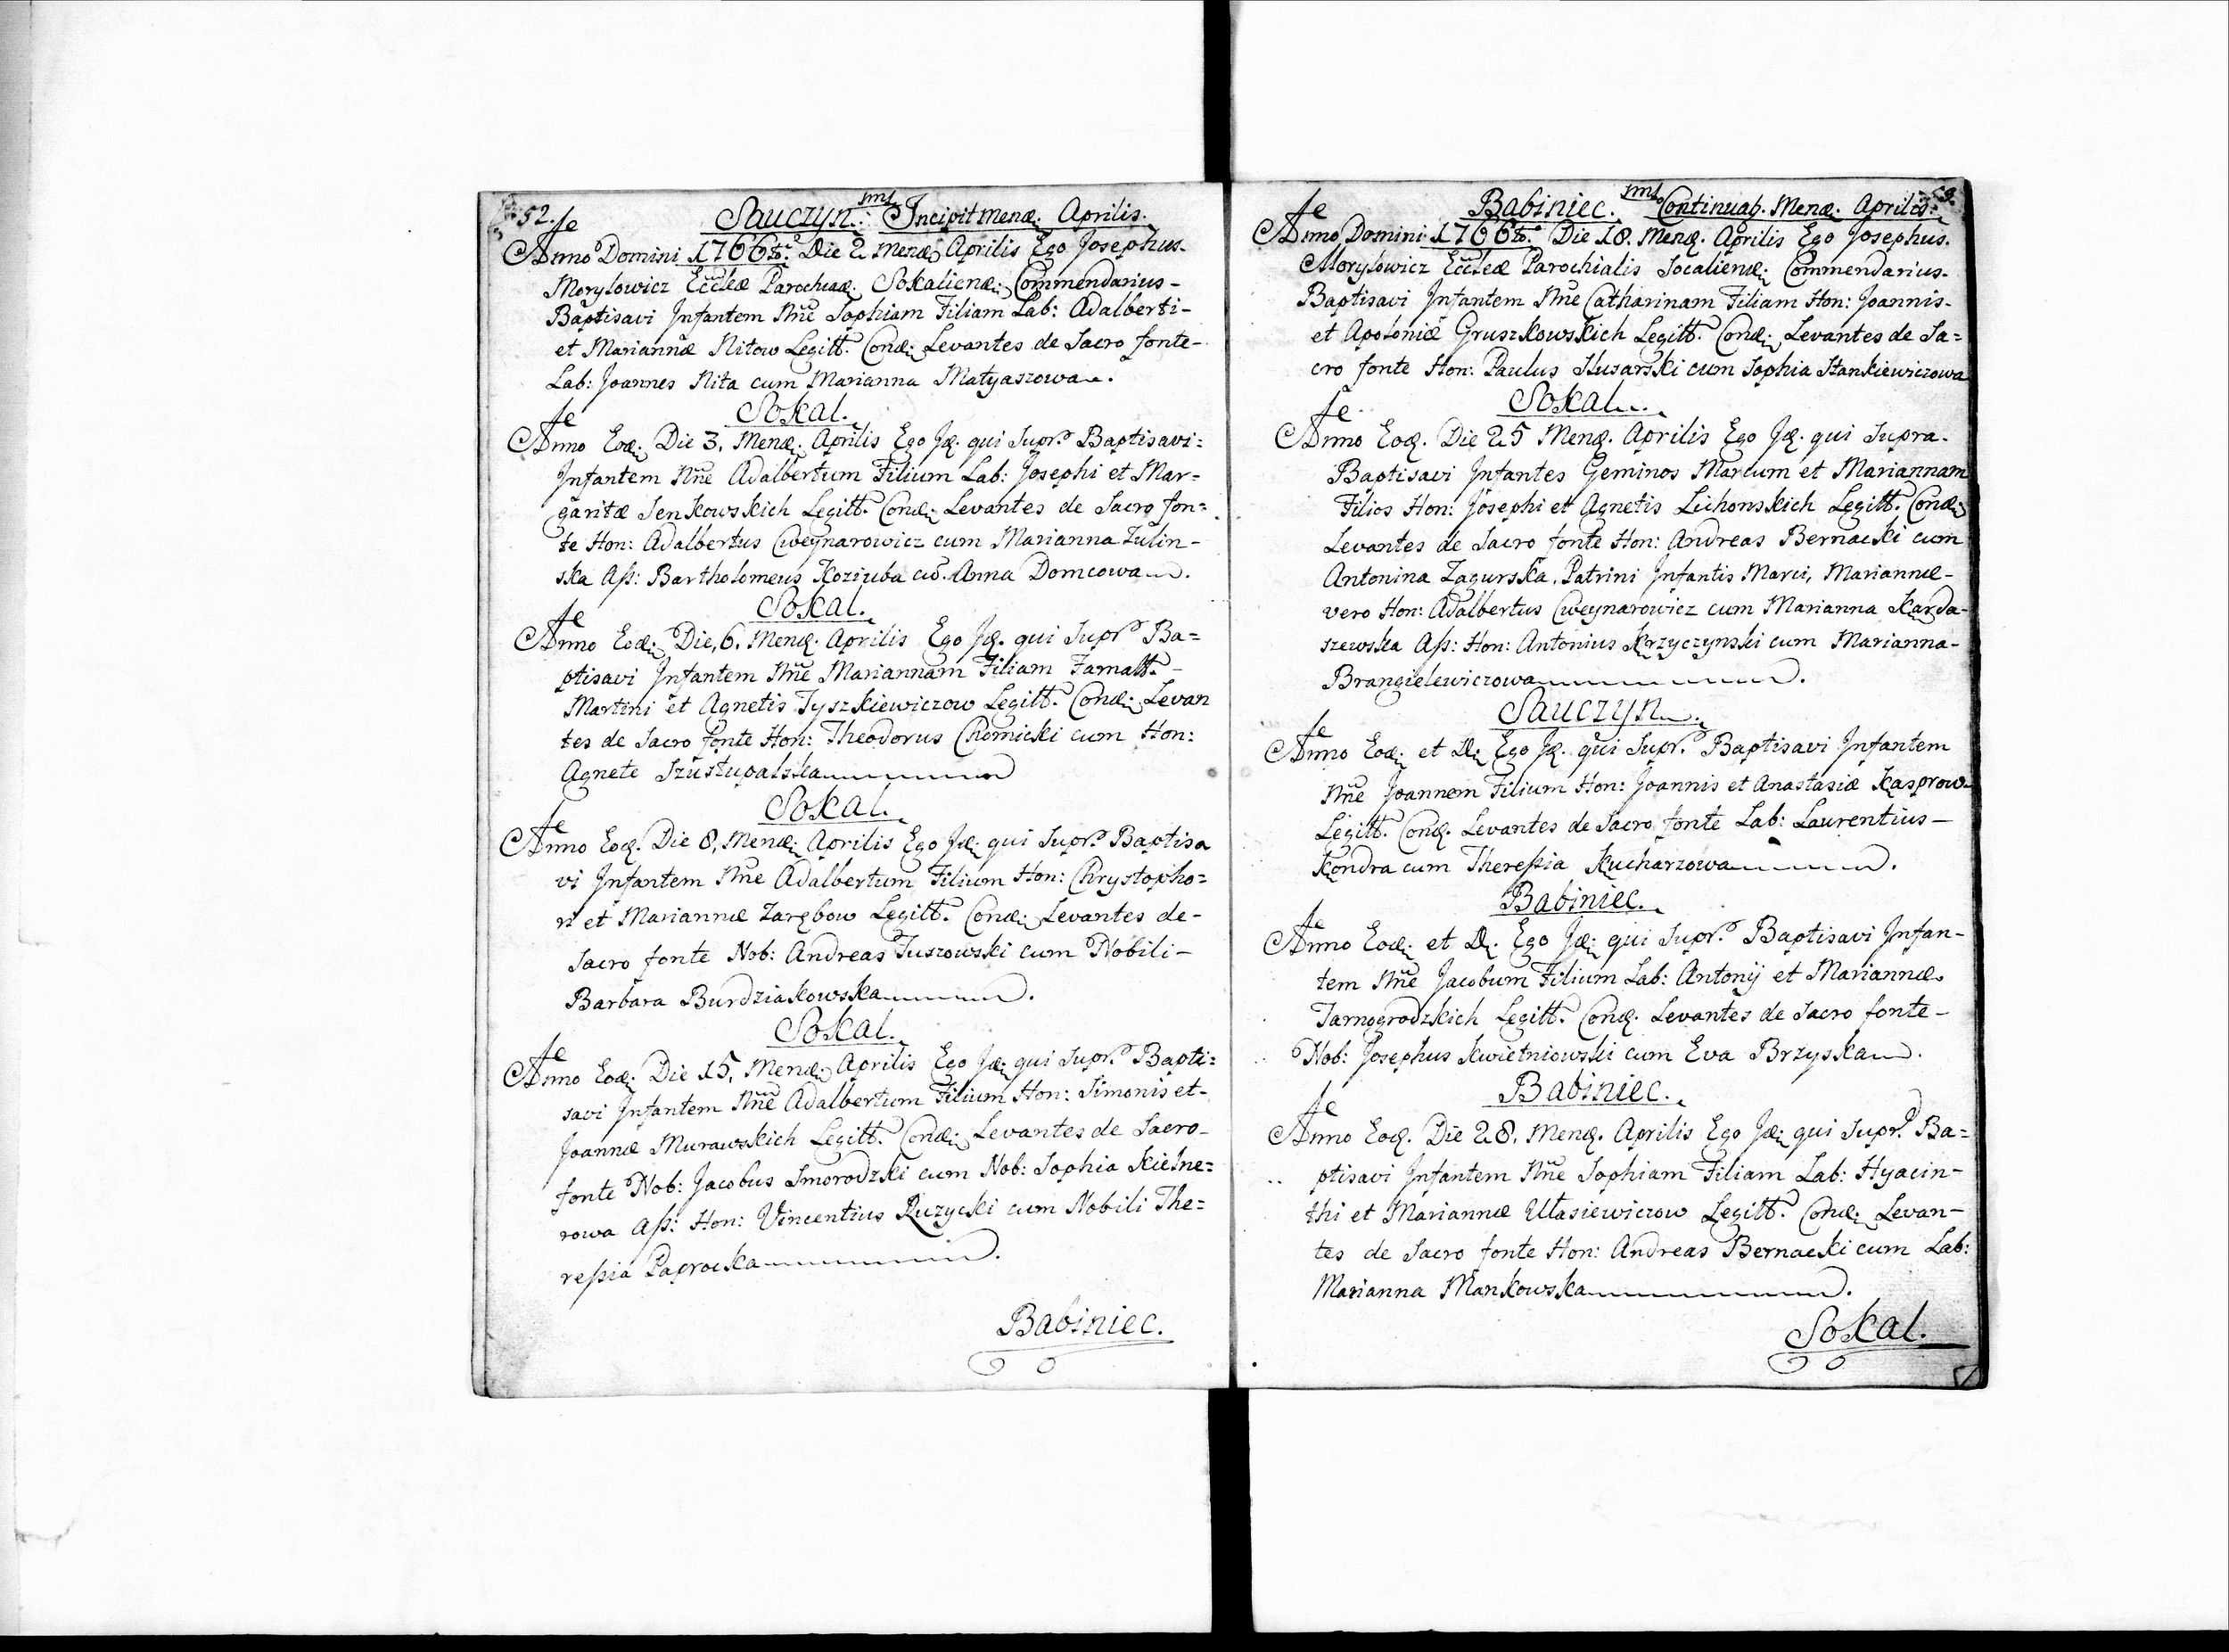 52.
Sauczyn. Incipit mens. Aprilis.
Anno Domini 1766to. Die 2 Mens. Aprilis Ego Josephus.
Morylowicz Eccleæ Parochiæ. Sokalien. Commendarius-
Baptisavi Infantem Nñe Sophiam Filiam Lab: Adalberti-
et Mariannæ Nitow Legitt. Cond. Levantes de Sacro fonte-
Lab: Joannes Nita cum Marianna Matyaszowa.
Sokal.
Anno Eod. Die 3. Mens. Aprilis Ego Id. qui Supr. Baptisavi:
Infantem Nñe Adalbertum Filium Lab: Josephi et Mar-
garitæ Senkowskich Legitt. Cond. Levantes de Sacro fon=
te Hon: Adalbertus Cweynarowicz cum Marianna Zulin-
ska Aſs: Bartholomeus Koziuba cū. Anna Domcowa.
Sokal.
Anno Eod. Die, 6. Mens. Aprilis Ego Id. qui Supr. Ba=
ptisavi Infantem Nñe Mariannam Filiam Famatt.-
Martini et Agnetis Tyszkiewiczow Legitt. Cond. Levan
tes de Sacro fonte Hon: Theodorus Chomicki cum Hon:
Agnete Szustupalska
Sokal.
Anno Eod. Die 8, Mens. Aprilis Ego Id. qui Supr. Baptisa
vi Infantem Nñe Adalbertum Filium Hon: Chrystopho=
ri et Mariannæ Zarębow Legitt. Cond. Levantes de-
Sacro fonte Nob: Andreas Tuszowski cum Nobili-
Barbara Burdziakowska.
Sokal.
Anno Eod. Die 15, Mens. Aprilis Ego Id. qui Supr. Bapti=
savi Infantem Nñe Adalbertum Filium Hon: Simonis et-
Joannæ Murawskich Legitt. Cond. Levantes de Sacro-
fonte Nob: Jacobus Smorodzki cum Nob: Sophia Kielne=
rowa Aſs: Hon: Vincentius Ruzycki cum Nobili The=
reſsia Paprocka.
Babiniec.
Babiniec. Continuat. Mens. Aprilis.
Anno Domini 1766to. Die 18. Mens. Aprilis Ego Josephus.
Morylowicz Eccleæ Parochialis Socalien. Commendarius-
Baptisavi Infantem Nñe Catharinam Filiam Hon: Joannis-
et Apoloniæ Gruszkowskich Legitt. Cond. Levantes de Sa=
cro fonte Hon: Paulus Husarski cum Sophia Hankiewiczowa
Sokal.
Anno Eod. Die 25 Mens. Aprilis Ego Id. qui Supra.
Baptisavi Infantes Geminos Marcum et Mariannam
Filios Hon: Josephi et Agnetis Lichonskich Legitt. Cond.
Levantes de Sacro fonte Hon: Andreas Bernacki cum
Antonina Zagurska, Patrini Infantis Marci, Mariannæ-
vero Hon: Adalbertus Cweynarowicz cum Marianna Karda-
szewska Aſs: Hon: Antonius Krzyczynski cum Marianna-
Brangielewiczowa.
Sauczyn.
Anno Eod. et D. Ego Id. qui Supr. Baptisavi Infantem
Nñe Joannem Filium Hon: Joannis et Anastasiæ Kasprow-
Legitt. Cond. Levantes de Sacro fonte Lab: Laurentius-
Kondra cum Thereſsia Kucharzowa.
Babiniec.
Anno Eod. et D. Ego Id. qui Supr. Baptisavi Infan-
tem Nñe Jacobum Filium Lab: Antonij et Mariannæ
Tarnogrodzkich Legitt. Cond. Levantes de Sacro fonte-
Nob: Josephus Kwietniowski cum Eva Brzyska.
Babiniec.
Anno Eod. Die 28. Mens. Aprilis Ego Id. qui Supr. Ba=
ptisavi Infantem Nñe Sophiam Filiam Lab: Hyacin-
thi et Mariannæ Ulasiewiczow Legitt. Cond. Levan-
tes de Sacro fonte Hon: Andreas Bernacki cum Lab:
Marianna Mankowska.
Sokal.